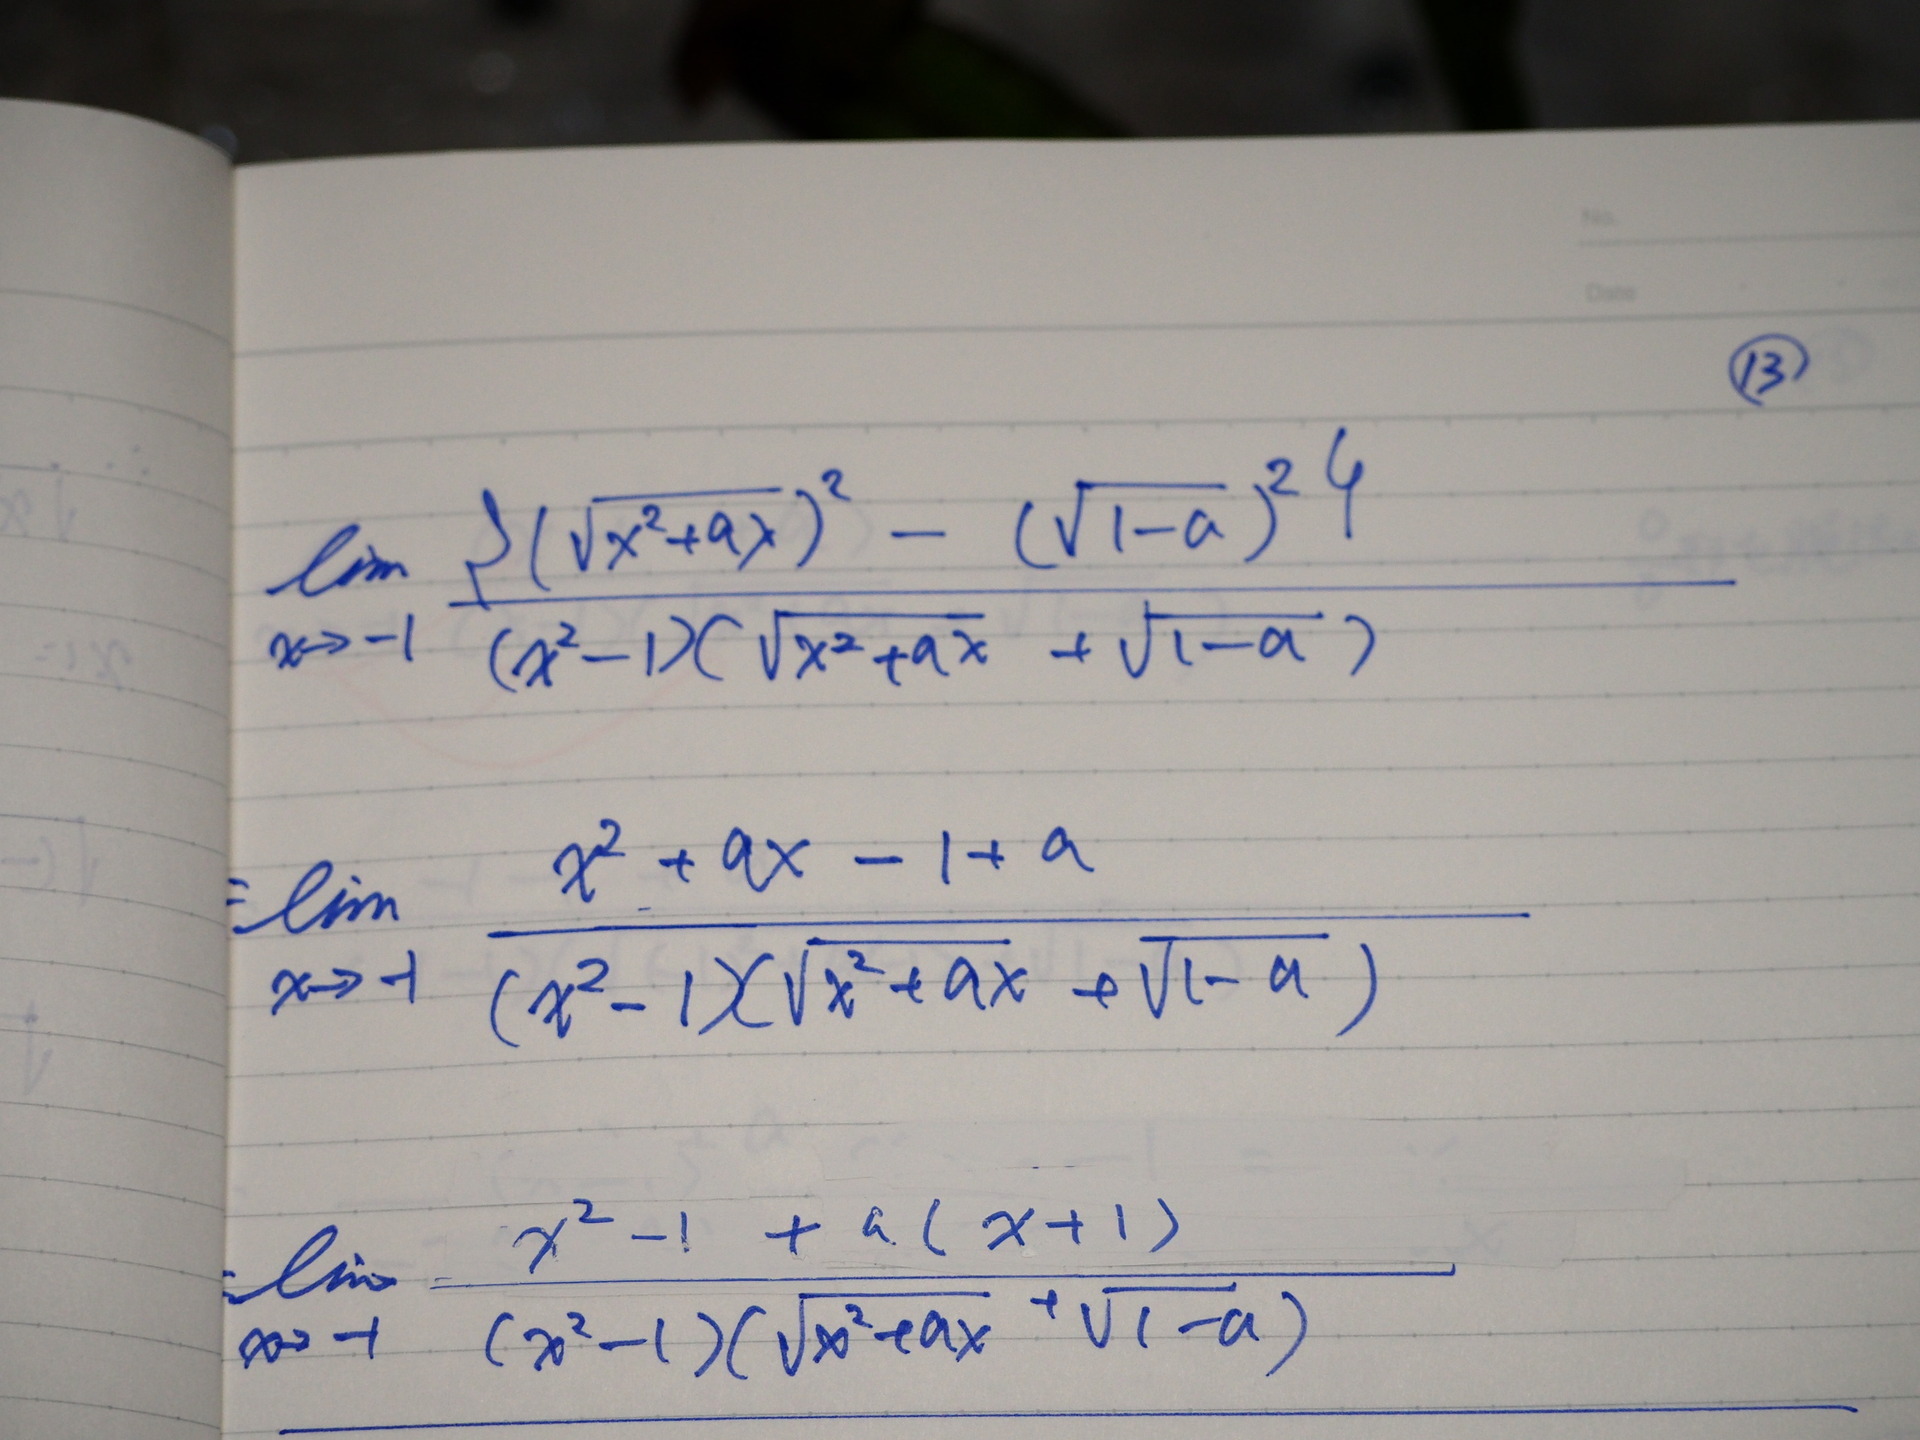 No.
Date
⑬
lim_{x→-1} {(√(x²+ax))² - (√(1-a))²} / (x²-1)(√(x²+ax) + √(1-a))
= lim_{x→-1} x² + ax - 1 + a / (x²-1)(√(x²+ax) + √(1-a))
= lim_{x→-1} x² - 1 + a(x+1) / (x²-1)(√(x²+ax) + √(1-a))